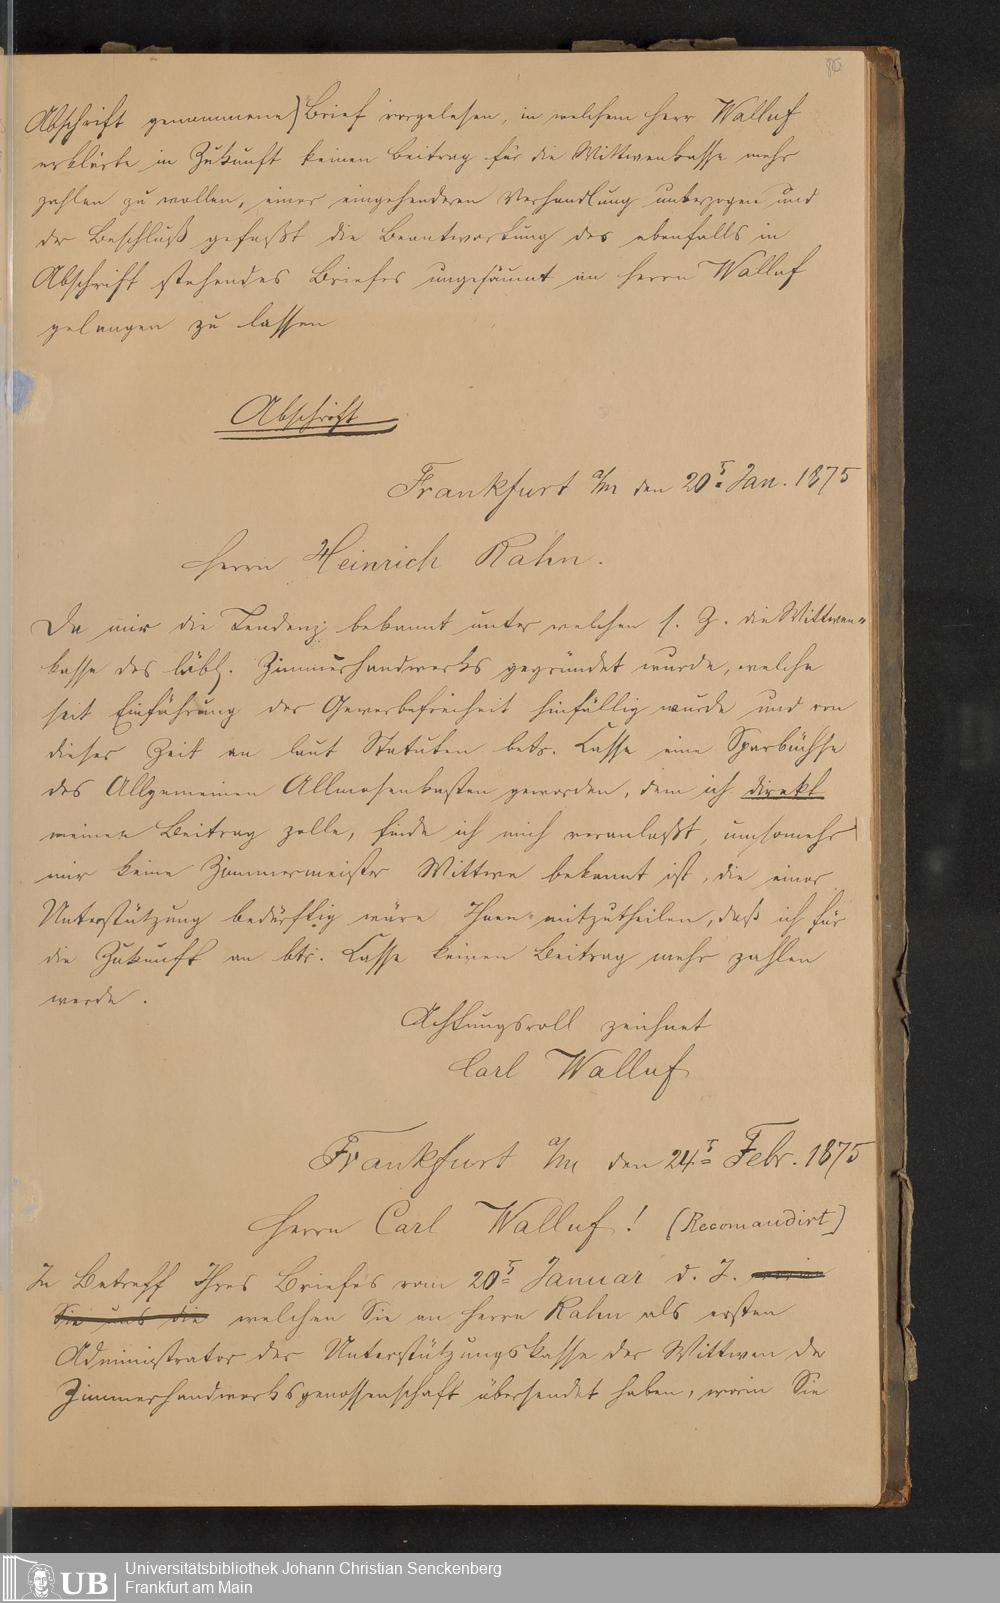 86
Abschrift genommene) Brief vorgelesen, in welchem Herr Walluf
erklärte in Zukunft keinen Beitrag für die Wittwenkasse mehr
zahlen zu wollen, einer eingehenderen Verhandlung unterzogen und
der Beschluß gefaßt die Beantwortung des ebenfalls in
Abschrift stehendes Briefes ungesäumt an Herrn Walluf
gelangen zu lassen
Abschrift
Frankfurt a/m den 20t Jan. 1875
Herrn Heinrich Rahn.
Da mir die Tendenz bekannt unter welchen s. Z. die Wittwen-
kasse des löbl. Zimmerhandwerks gegründet wurde, welche
seit Einführung der Gewerbefreiheit hinfällig wurde und von
dieser Zeit an laut Statuten betr. Casse eine Sparbüchse
des Allgemeinen Allmosenkasten geworden, dem ich direkt
meinen Beitrag zolle, finde ich mich veranlaßt, umsomehr
mir keine Zimmermeister Wittwe bekannt ist, die einer
Unterstützung bedürftig wäre Ihnen mitzutheilen, daß ich für
die Zukunft an btr. Casse keinen Beitrag mehr zahlen
werde.
Achtungsvoll zeichnet
Carl Walluf
Frankfurt a/m den 24t Febr. 1875
Herrn Carl Walluf! (Recomandirt)
In Betreff Ihres Briefes vom 20t Januar d. J.
Sie uns die welchen Sie an Herrn Rahn als ersten
Administrator der Unterstützungskasse der Wittwen der
Zimmerhandwerksgenossenschaft übersendet haben, worin Sie
UB
Universitätsbibliothek Johann Christian Senckenberg
Frankfurt am Main